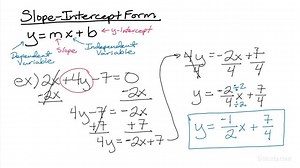 Slope-Intercept Form
y = mx + b ← y-intercept
Dependent Variable
Slope
Independent Variable
ex) 2x + 4y - 7 = 0
-2x -2x
4y - 7 = -2x
+7 +7
4y = -2x + 7
4y/4 = -2x/4 + 7/4
y = -2÷2/4÷2 x + 7/4
y = -1/2 x + 7/4